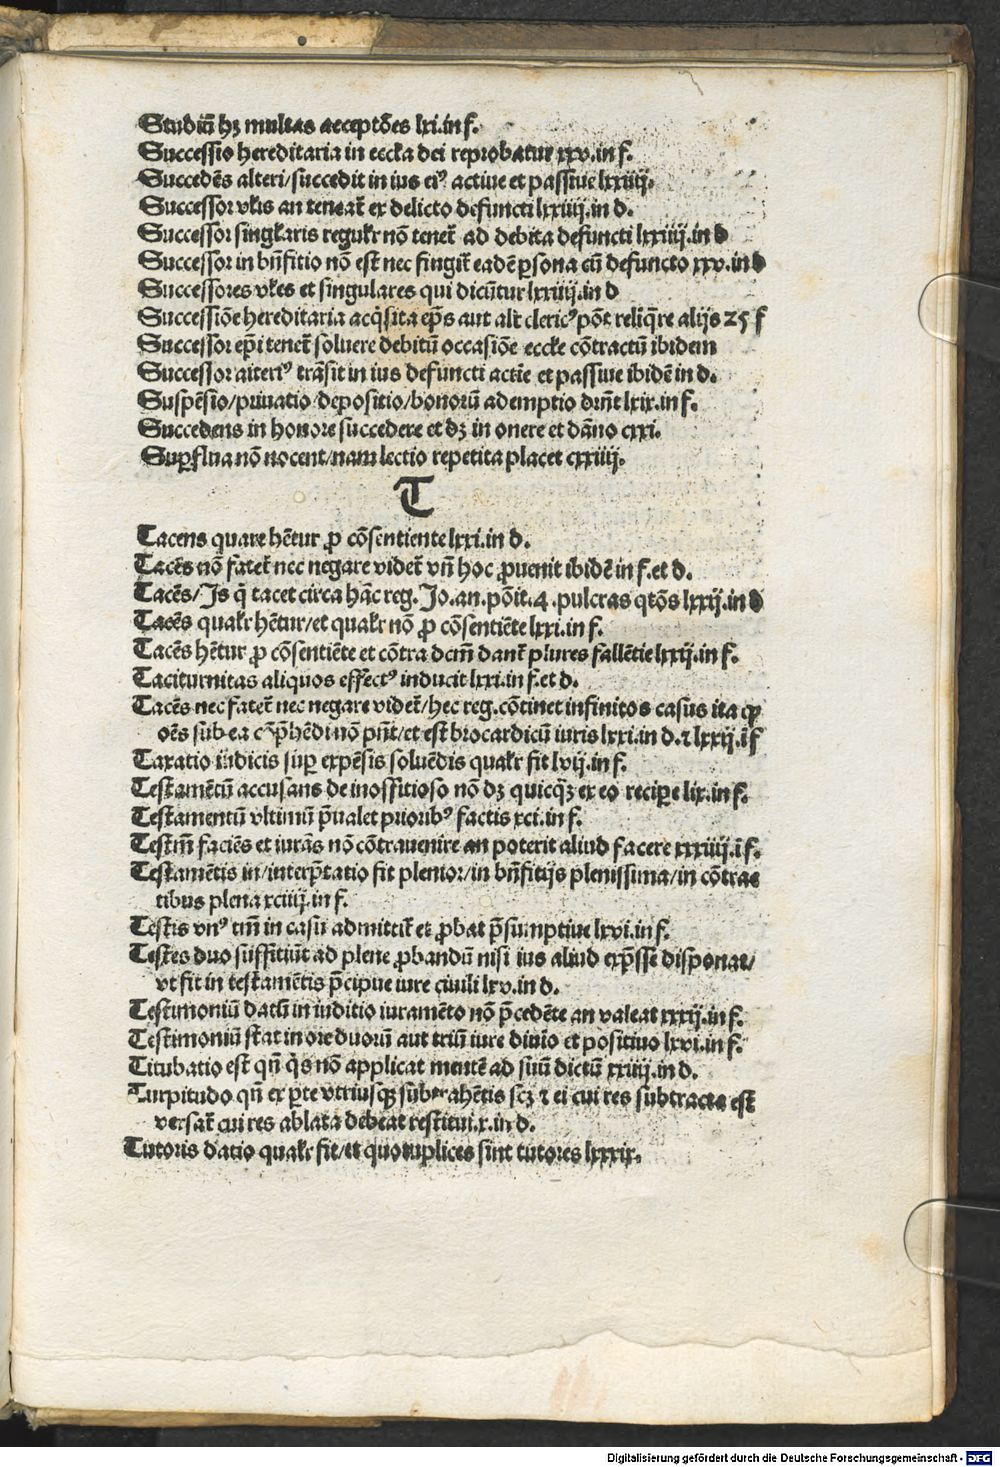 Studiū hꝫ multas acceptōes lxi.in f.
Successio hereditaria in eccl̄ia dei reprobatur xxv.in f.
Succedēs alteri/succedit in ius eiꝰ actiue et passiue lxxiiij.
Successor vl̄is an teneat̄ ex delicto defuncti lxxiiij.in d.
Successor singl̄aris regul̄r nō tenet̄ ad debita defuncti lxxiiij.in d
Successor in bn̄fitio nō est nec fingit̄ eadē ꝑsona cū defuncto xxv.in d
Successores vl̄es et singulares qui dicūtur lxxiiij.in d
Successiōe hereditaria acq̄sita ep̄s aut alt̄ clericꝰ pōt reliq̄re alijs 25 f
Successor ep̄i tenet̄ soluere debitū occasiōe eccl̄e cōtractū ibidem
Successor alteriꝰ trāsit in ius defuncti actiē et passiue ibidē in d.
Suspēsio/priuatio/depositio/bonorū ademptio dr̄nt lxix.in f.
Succedens in honore succedere et dꝫ in onere et dāno cxxi.
Suꝑflua nō nocent/nam lectio repetita placet cxxiiij.
T
Tacens quare hētur ꝓ cōsentiente lxxi.in d.
Tacēs nō fatet̄ nec negare videt̄ vn̄ hoc ꝓuenit ibidē in f.et d.
Tacēs/Is q̄ tacet circa hāc reg.Jo.an.pōit.4.pulcras qt̄ōs lxxij.in d
Tacēs qual̄r hētur/et qual̄r nō ꝓ cōsentiēte lxxi.in f.
Tacēs hētur ꝓ cōsentiēte et cōtra dcm̄ dant̄ plures fallētie lxxij.in f.
Taciturnitas aliquos effectꝰ inducit lxxi.in f.et d.
Tacēs nec fatet̄ nec negare videt̄/hec reg.cōtinet infinitos casus ita ꝙ
oēs sub ea cōp̄hēdi nō pn̄t/et est brocardicū iuris lxxi.in d.⁊ lxxij.ī f
Taxatio iudicis suꝑ expēsis soluēdis qual̄r fit lvij.in f.
Testamētū accusans de inoffitioso nō dꝫ quicqꝫ ex eo reciꝑe lix.in f.
Testamentū vltimū p̄ualet prioribꝰ factis xci.in f.
Testm̄ faciēs et iurās nō cōtrauenire an poterit aliud facere xxxiiij.ī f.
Testamētis in/interp̄tatio fit plenior/in bn̄fitijs plenissima/in cōtrac
tibus plena xciiij.in f.
Testis vnꝰ tm̄ in casu admittit̄ et ꝓbat p̄sumptiue lxvi.in f.
Testes duo suffitiūt ad plene ꝓbandū nisi ius aliud exp̄sse disponat/
vt fit in testamētis p̄cipue iure ciuili lxv.in d.
Testimoniū datū in iuditio iuramēto nō p̄cedēte an valeat xxxij.in f.
Testimoniū stat in ore duorū aut triū iure diuīo et positiuo lxvi.in f.
Titubatio est qn̄ q̄s nō applicat mentē ad suū dictū xxiiij.in d.
Turpitudo qn̄ ex ꝑte vtriusqꝫ subtrahētis scꝫ ⁊ ei cui res subtracta est
versat̄ cui res ablata debeat restitui.x.in d.
Tutoris datio qual̄r fit/et quotuplices sint tutores lxxxix.
Digitalisierung gefördert durch die Deutsche Forschungsgemeinschaft - DFG